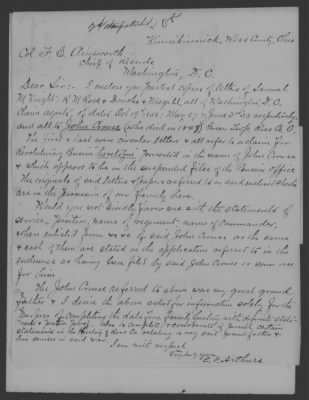 Kinnickinnick, Ross County, Ohio
Col. F. C. Ainsworth
Chief of Records
Washington, D. C.
Dear Sir:- I enclose you exact copies of letters of Samuel
McKnight, R. M. Rose & Magill, all of Washington D.C.
Claim agents, of dates Oct 19th 1852; May 27 & June 3rd '53 respectively
and all to John Crouse (who died in 1847) Ross Co. O.
The first & last were circular letters & all refer to a claim for
Revolutionary presented in the name of John Crouse
& which appears to be in the suspended files of the Pension office
The originals of said letters & papers referred to in said enclosed sheets
are in the possession of our family here.
Would you not kindly favor me with the statements of
service, position, name of regiment, name of Commander,
when enlisted from &c &c by said John Crouse as the same
& each of them are stated in the application referred to in the
enclosures as having been filed by said John Crouse or some one
for him
The John Crouse referred to above was my great grand
father & I desire the above asked for information solely for the
purpose of completing the data in a family history with definite state-
ments & positive proof. Also to complete & corroborate if possible certain
statements in the History of Ross Co relating to my said grand father &
his service in said war.
I am with respect
Truly yours
E. F. Arthurs